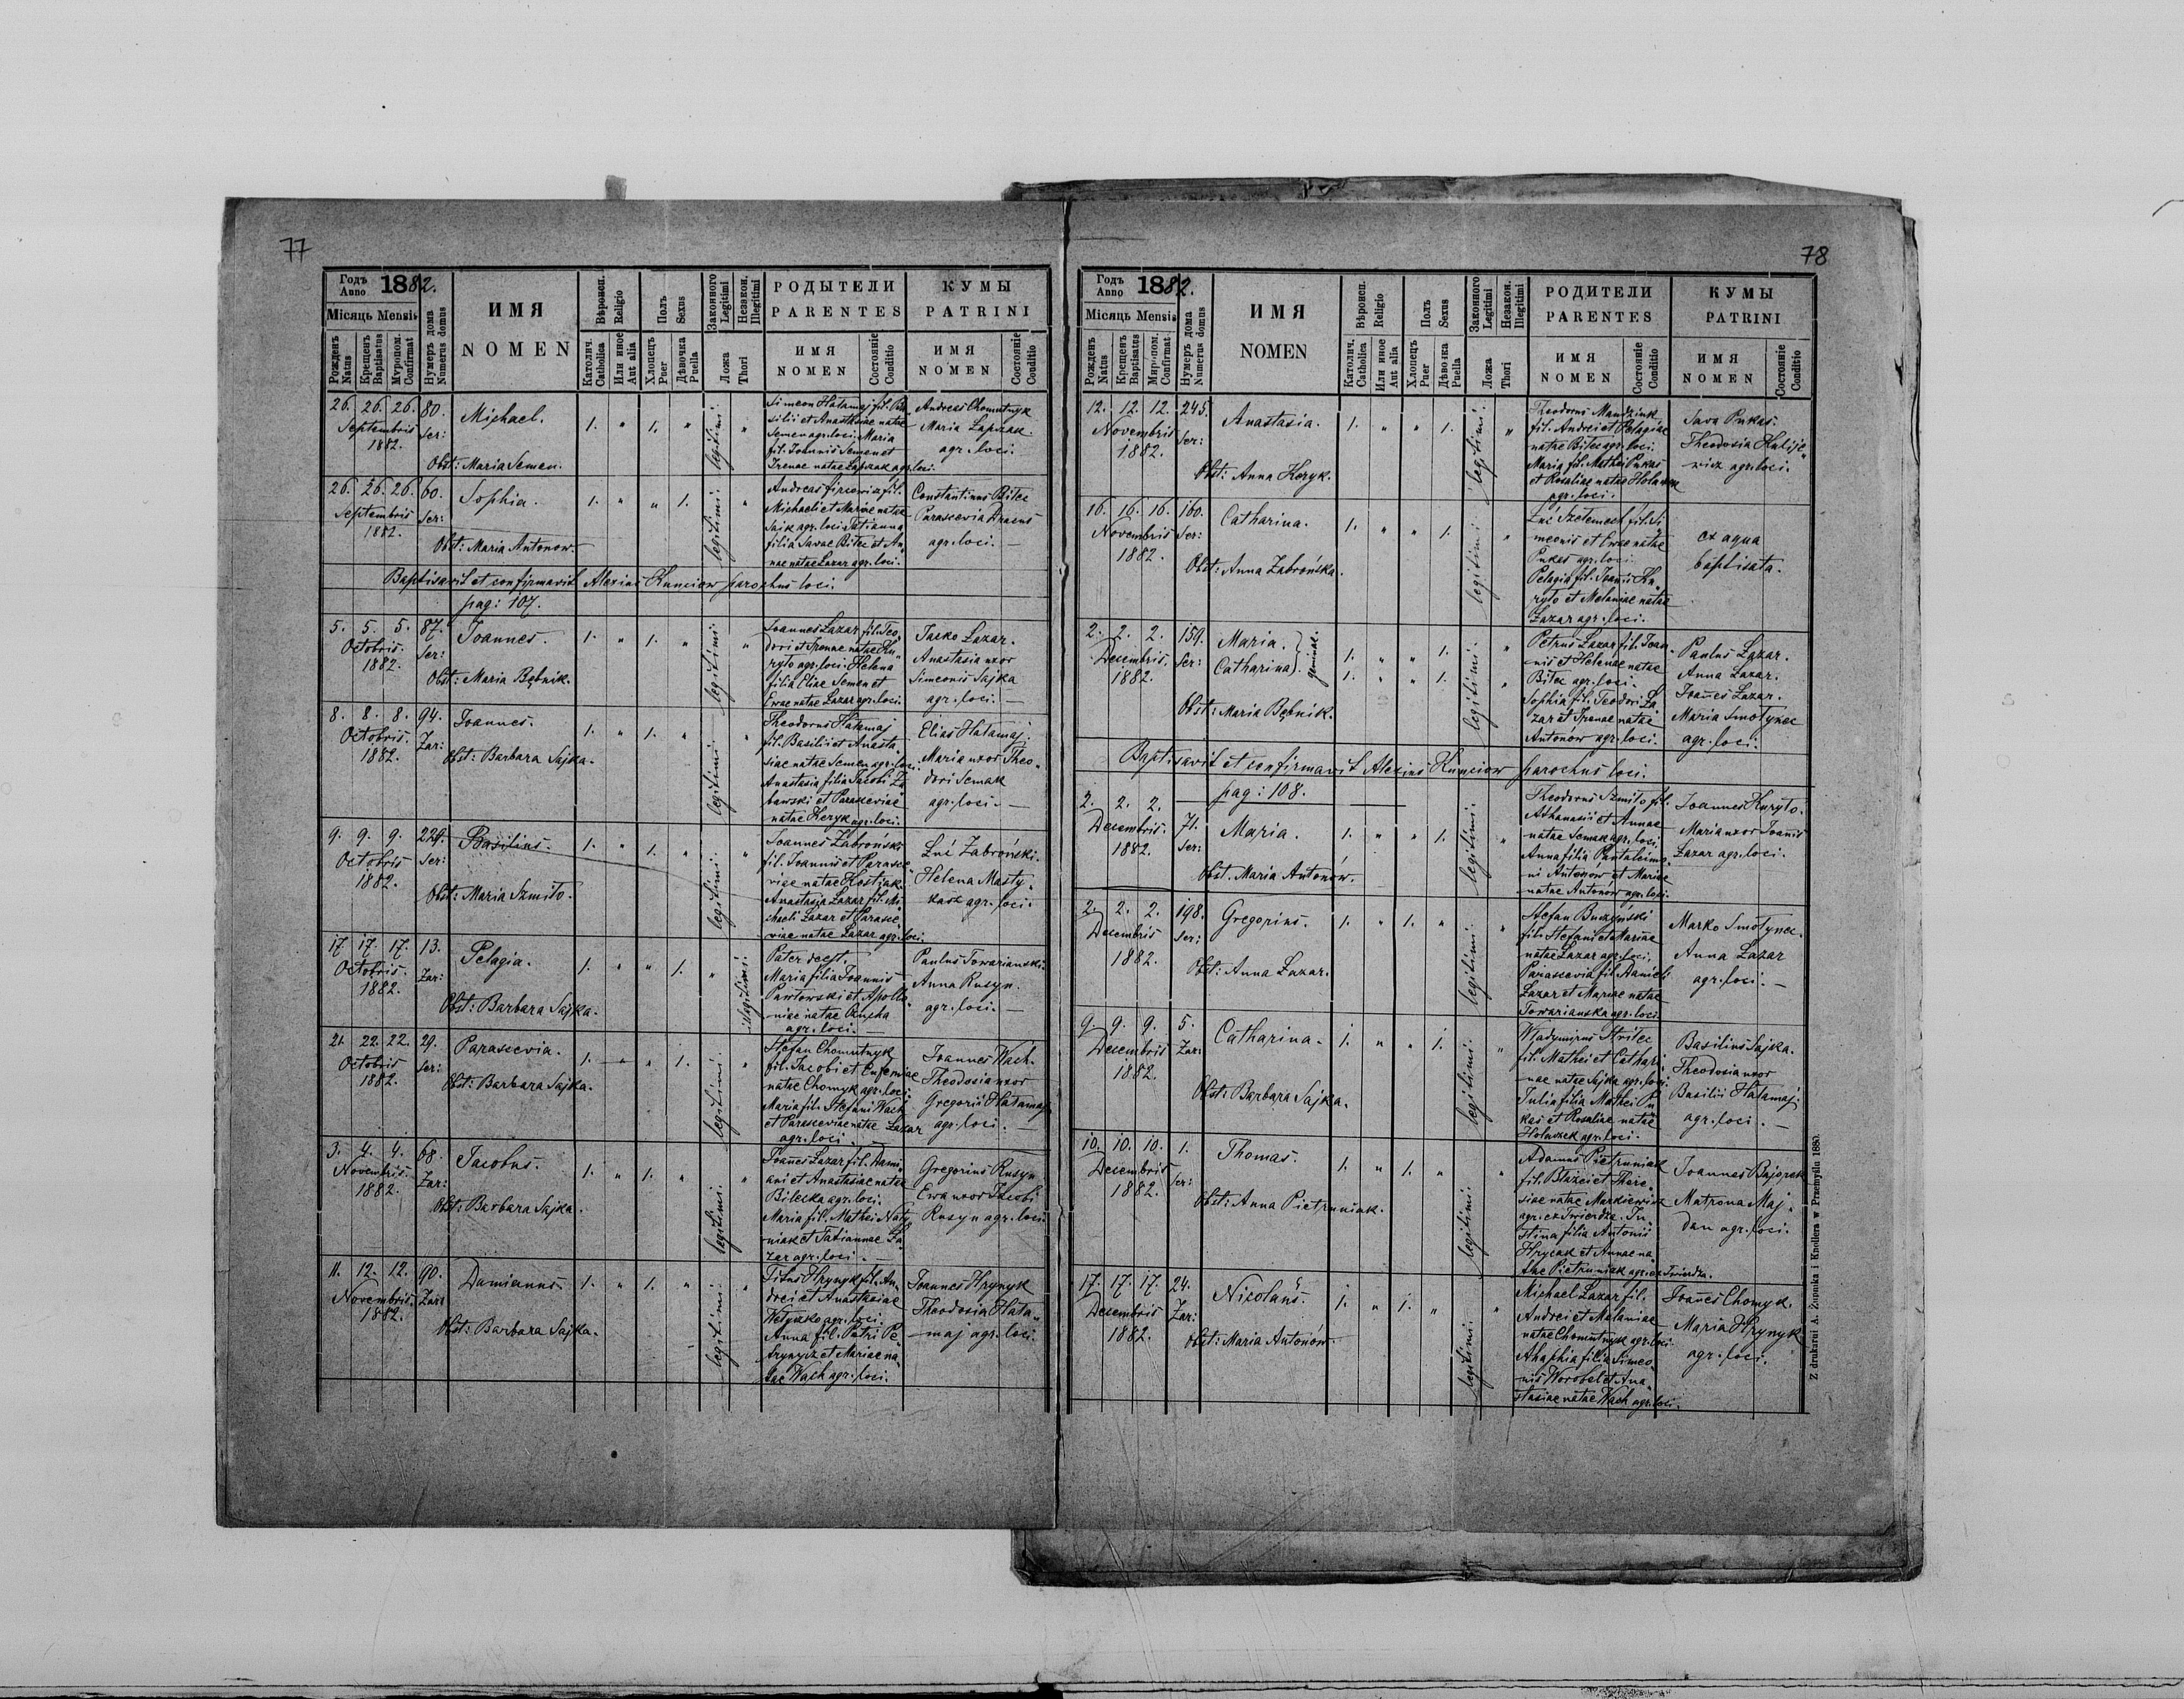 77
Годъ Anno 1882.
Місяць Mensis
Рожденъ Natus
Крещенъ Baptisatus
Мvропом. Confirmat
Нумеръ дома Numerus domus
ИМЯ
NOMEN
Вѣроисп. Religio
Католич. Catholica
Или иное Aut alia
Полъ Sexus
Хлопецъ Puer
Дѣвочка Puella
Законного Legitimi
Незакон. Illegitimi
Ложа Thori
РОДЫТЕЛИ
PARENTES
ИМЯ NOMEN
Состояніе Conditio
КУМЫ
PATRINI
ИМЯ NOMEN
Состояніе Conditio
26. 26. 26. 80.
Septembris Ser:
1882.
Michael.
Obst: Maria Semen.
1. " 1. "
legitimi.
Simeon Hatamaj fil. Ba„
silii et Anastasiae natae
Semen agr. loci. Maria
fil. Joannis Semen et
Irenae natae Lapczak agr. loci.
Andreas Chomutnyk
Maria Lapczak.
agr. loci.
26. 26. 26. 60.
Septembris Ser:
1882.
Sophia.
Obst: Maria Antonow.
1. " " 1.
legitimi.
Michaeli et Mariae natae
Sajk agr. loci. Tatianna
filia Savae Bilec et An„
nae natae Lazar agr. loci.
Constantinus Bilec
agr. loci. —
Baptisavit et confirmavit Alexius Kunciow parochus loci.
pag: 107.
5. 5. 5. 87.
Octobris. Ser:
1882.
Joannes.
Obst: Maria Bębnik.
1. " 1. "
legitimi.
Joannes Lazar fil. Teo„
dori et Irenae natae Ku„
ryto agr. loci. Helena
filia Eliae Semen et
Ewae natae Lazar agr. loci.
Jacko Lazar.
Anastasia uxor
Simeonis Sajka
agr. loci. —
8. 8. 8. 94.
Octobris. Zar:
1882.
Joannes.
Obst: Barbara Sajka.
1. " 1. "
legitimi.
Theodorus Hatamaj
fil. Basilii et Anasta„
siae natae Semen agr. loci.
Anastasia filia Jacobi Za„
bawski et Parasceviae
natae Keryk agr. loci.
Elias Hatamaj.
Maria uxor Theo„
dori Semak
agr. loci. —
9. 9. 9. 229.
Octobris Ser:
1882.
Basilius.
Obst: Maria Szmito.
1. " 1. "
legitimi.
Joannes Zabroński
fil. Joannis et Parasce„
viae natae Kostjak.
Anastasia Lazar fil. Mi„
chaeli Lazar et Parasce„
viae natae Lazar agr. loci.
Luć Zabroński.
Helena Masty„
kasz agr. loci.
17. 17. 17. 13.
Octobris. Zar:
1882.
Pelagia.
Obst: Barbara Sajka.
1. " " 1.
illegitimi.
Pater deest.
Maria filia Joannis
Pawłowski et Apollo„
niae natae
agr. loci. —
Paulus Towarianski.
Anna Rusyn.
agr. loci. —
21. 22. 22. 29.
Octobris Ser:
1882.
Parascevia.
Obst: Barbara Sajka.
1. " " 1.
legitimi.
Stefan Chomutnyk
fil. Jacobi et Eufemiae
natae Chomyk agr. loci.
Maria fil. Stefani Wach
et Parasceviae natae Lazar
agr. loci. —
Joannes Wach.
Theodosia uxor
Gregorii Hatamaj
agr. loci. —
3. 4. 4. 68.
Novembris. Zar:
1882.
Jacobus.
Obst: Barbara Sajka.
1. " 1. "
legitimi.
Joañes Lazar fil. Dami„
ani et Anastasiae natae
Bilecka agr. loci.
Maria fil. Mathei Naty„
niak et Tatiannae La„
zar agr. loci.
Gregorius Rusyn
Ewa uxor Jacobi
Rusyn agr. loci.
11. 12. 12. 90.
Novembris. Zar:
1882.
Damianus.
Obst: Barbara Sajka.
1. " 1. "
legitimi.
Titus Hrynyk fil. An„
drei et Anastasiae
agr. loci.
Anna fil. Petri Pe„
trynycz et Mariae na„
tae Wach agr. loci.
Joannes Hrynyk
Theodosia Hata„
maj agr. loci.
78
Годъ Anno 1882.
Місяць Mensis
Рожденъ Natus
Крещенъ Baptisatus
Мvропом. Confirmat.
Нумеръ дома Numerus domus
ИМЯ
NOMEN
Вѣроисп. Religio
Католич. Catholica
Или иное Aut alia
Полъ Sexus
Хлопецъ Puer
Дѣвочка Puella
Законного Legitimi
Незакон. Illegitimi
Ложа Thori
РОДИТЕЛИ
PARENTES
ИМЯ NOMEN
Состояніе Conditio
КУМЫ
PATRINI
ИМЯ NOMEN
Состояніе Conditio
12. 12. 12. 245.
Novembris Ser:
1882.
Anastasia.
Obst: Anna Keryk.
1. " " 1.
legitimi.
Theodorus Mandziuk
fil. Andrei et Pelagiae
natae Bilec agr. loci.
Maria fil. Mathei Pukas
et Rosaliae natae Holuszek
agr. loci.
Sava Pukas.
Theodosia Hulije„
wicz agr. loci.
16. 16. 16. 160.
Novembris Ser:
1882.
Catharina.
Obst: Anna Zabrońska.
1. " " 1.
legitimi.
Luć Szelemech fil. Si„
meonis et Ewae natae
Pukas agr. loci.
Pelagia fil. Joanis Ku„
ryto et Melaniae natae
Lazar agr. loci.
ex aqua
baptisata.
2. 2. 2. 159.
Decembris. Ser:
1882.
Maria.
Catharina.
gemak.
Obst: Maria Bębnik.
1. " " 1.
1. " " 1.
legitimi.
Petrus Lazar fil. Joan„
nis et Helenae natae
Bilec agr. loci.
Sophia fil. Teodori La„
zar et Irenae natae
Antonów agr. loci.
Paulus Lazar.
Anna Lazar.
Joañes Lazar.
Maria Smotynec
agr. loci.
Baptisavit et confirmavit Alexius Kunciow parochus loci.
pag: 108.
2. 2. 2. 71.
Decembris. Ser:
1882.
Maria.
Obst. Maria Antonów.
1. " " 1.
legitimi.
Theodorus Szmito fil.
Athanasii et Annae
natae Semak agr. loci.
Anna filia Pantaleimo„
ni Antonów et Mariae
natae Antonów agr. loci.
Joannes Kuryto.
Maria uxor Joanis
Lazar agr. loci.
2. 2. 2. 198.
Decembris Ser:
1882.
Gregorius.
Obst: Anna Lazar.
1. " 1. "
legitimi.
Stefan Buczyński
fil. Stefani et Mariae
natae Lazar agr. loci.
Parascevia fil. Danieli
Lazar et Mariae natae
Towarianska agr. loci.
Marko Smotynec.
Anna Lazar
agr. loci. —
9. 9. 9. 5.
Decembris Zar:
1882.
Catharina.
Obst: Barbara Sajka.
1. " " 1.
legitimi.
Wladymirus Strilec
fil. Mathei et Cathari„
nae natae Sajka agr. loci.
Julia filia Mathei Pu„
kas et Rosaliae natae
Holuszek agr. loci.
Basilius Sajka.
Theodosia uxor
Basilii Hatamaj.
agr. loci. —
10. 10. 10. 1.
Decembris Ser:
1882.
Thomas.
Obst: Anna Pietruniak.
1. " 1. "
legitimi.
Adamus Pietruniak
fil. Blażei et There„
siae natae Markiewicz
agr. ex Twierdza. Ju„
stina filia Antonii
Hrycak et Annae na„
tae Pietruniak agr. ex Twierdza.
Joannes Bajorek
Matrona Maj„
dan agr. loci.
17. 17. 17. 24.
Decembris Zar:
1882.
Nicolaus.
Obst: Maria Antonów.
1. " 1. "
legitimi.
Michael Lazar fil.
Andrei et Melaniae
natae Chomutnyk agr. loci.
Ahaphia filia Simeo„
nis Worobel et Ana„
stasiae natae Wach agr. loci.
Joañes Chomyk.
Maria Hrynyk
agr. loci.
Z drukarni A. Żupnika i Knollera w Przemyślu 1880.